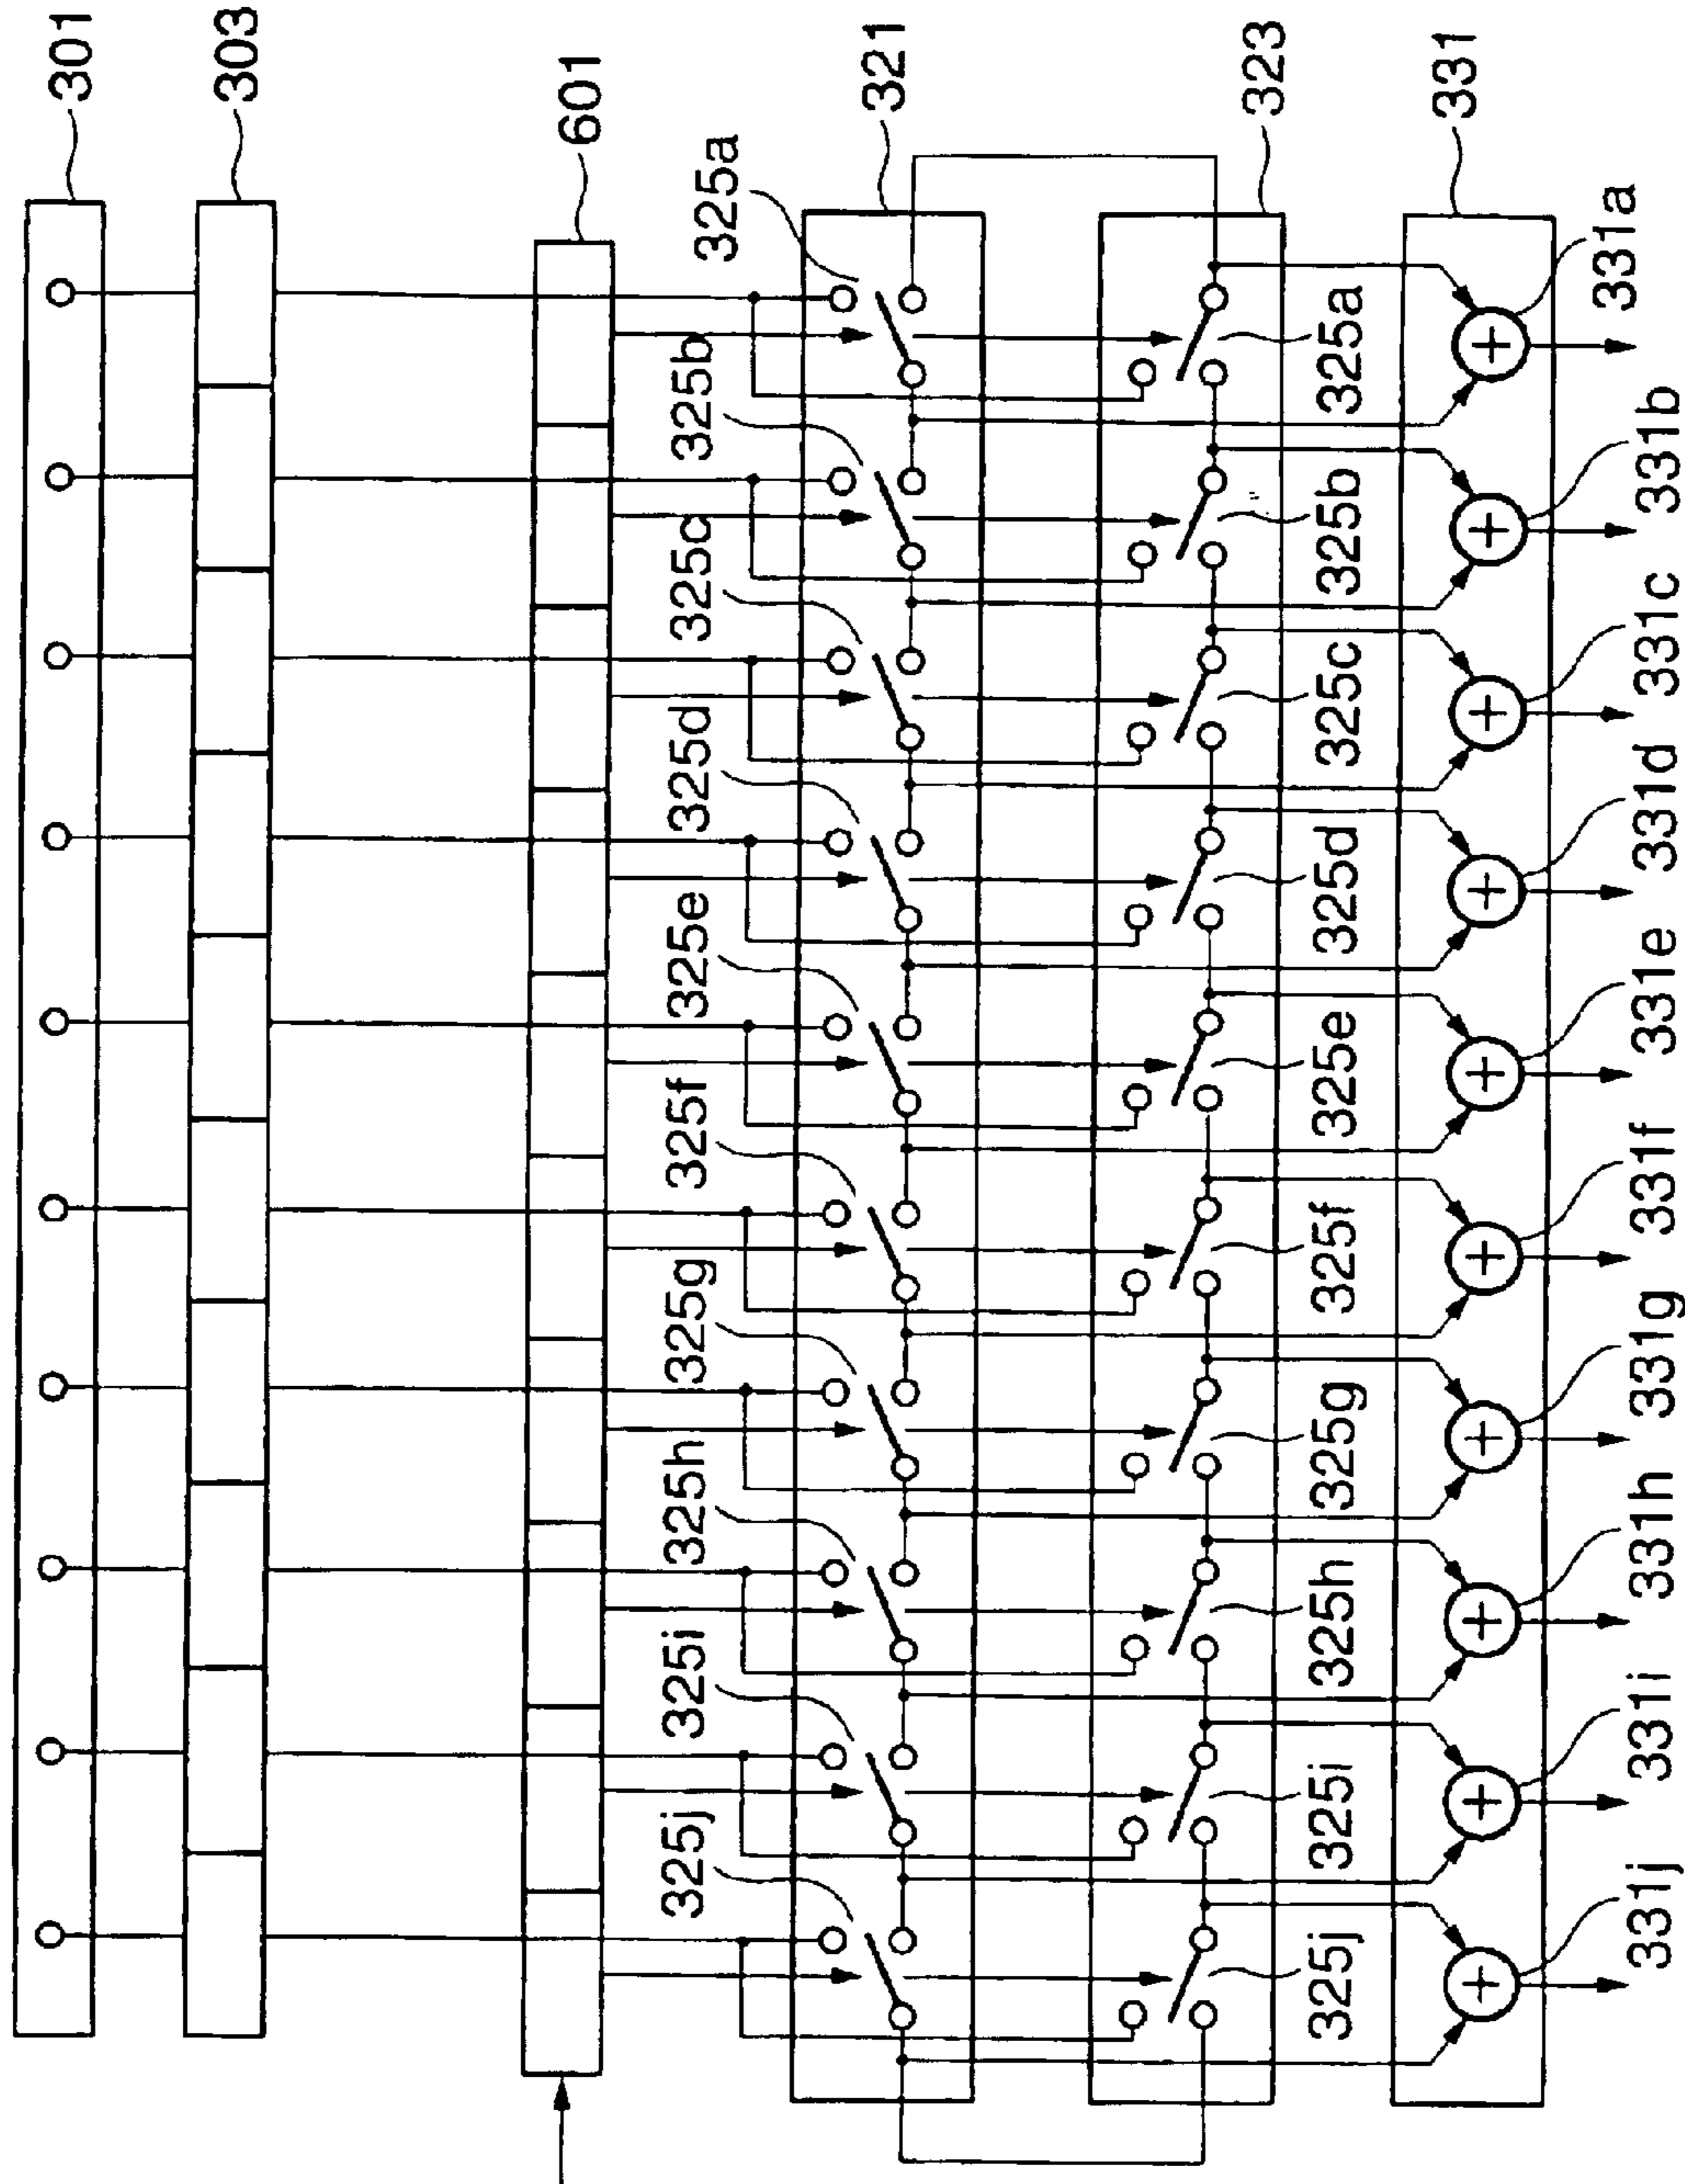 301
303
601
321
323
331
325a
325b
325c
325d
325e
325f
325g
325h
325i
325j
325a
325b
325c
325d
325e
325f
325g
325h
325i
325j
331a
331b
331c
331d
331e
331f
331g
331h
331i
331j